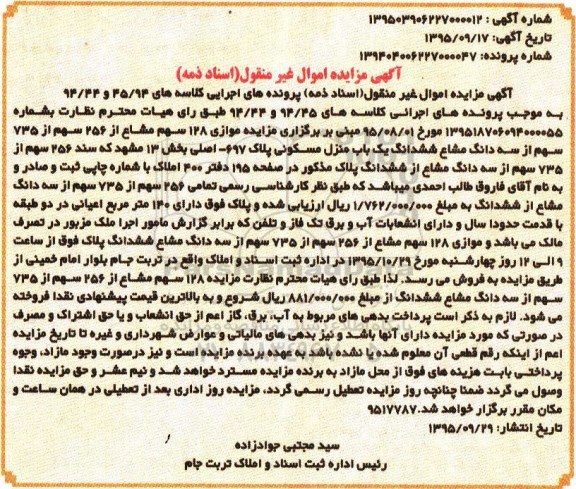 شماره آگهی : ۱۳۹۵۰۳۹۰۶۲۲۷۰۰۰۰۱۲
تاریخ آگهی: ۱۳۹۵/۰۹/۱۷
شماره پرونده: ۱۳۹۴۰۴۰۰۶۲۲۷۰۰۰۰۴۷
آگهی مزایده اموال غیر منقول(اسناد ذمه)
آگهی مزایده اموال غیر منقول(اسناد ذمه) پرونده های اجرایی کلاسه های ۴۵/۹۴ و ۹۴/۴۴
به موجب پرونده های اجرائی کلاسه های ۹۴/۴۵ و ۹۴/۴۴ طبق رای هیات محترم نظارت بشماره
۱۳۹۵۱۸۷۰۶۰۹۴۰۰۰۰۵۵ مورخ ۹۵/۰۸/۰۱ مبنی بر برگزاری مزایده موازی ۱۲۸ سهم مشاع از ۲۵۶ سهم از ۷۳۵
سهم از سه دانگ مشاع ششدانگ یک باب منزل مسکونی پلاک ۶۹۷- اصلی بخش ۱۳ مشهد که سند ۲۵۶ سهم از
۷۳۵ سهم از سه دانگ مشاع از ششدانگ پلاک مذکور در صفحه ۱۹۵ دفتر ۴۰۰ املاک با شماره چاپی ثبت و صادر و
به نام آقای فاروق طالب احمدی میباشد که طبق نظر کارشناسی رسمی تمامی ۲۵۶ سهم از ۷۳۵ سهم از سه دانگ
مشاع از ششدانگ به مبلغ ۱/۷۶۲/۰۰۰/۰۰۰ ریال ارزیابی شده و پلاک فوق دارای ۱۴۰ متر مربع اعیانی در دو طبقه
با قدمت حدودا سال و دارای انشعابات آب و برق تک فاز و تلفن که برابر گزارش مامور اجرا ملک مزبور در تصرف
مالک می باشد و موازی ۱۲۸ سهم مشاع از ۲۵۶ سهم از ۷۳۵ سهم از سه دانگ مشاع ششدانگ پلاک فوق از ساعت
۹ الی ۱۲ روز چهارشنبه مورخ ۱۳۹۵/۱۰/۲۹ در اداره ثبت اسناد و املاک واقع در تربت جام بلوار امام خمینی از
طریق مزایده به فروش می رسد. لذا طبق رای هیات محترم نظارت مزایده ۱۲۸ سهم مشاع از ۲۵۶ سهم از ۷۳۵
سهم از سه دانگ مشاع ششدانگ از مبلغ ۸۸۱/۰۰۰/۰۰۰ ریال شروع و به بالاترین قیمت پیشنهادی نقدا فروخته
می شود. لازم به ذکر است پرداخت بدهی های مربوط به آب، برق، گاز اعم از حق انشعاب و یا حق اشتراک و مصرف
در صورتی که مورد مزایده دارای آنها باشد و نیز بدهی های مالیاتی و عوارض شهرداری و غیره تا تاریخ مزایده
اعم از اینکه رقم قطعی آن معلوم شده یا نشده باشد به عهده برنده مزایده است و نیز درصورت وجود مازاد، وجوه
پرداختی بابت هزینه های فوق از محل مازاد به برنده مزایده مسترد خواهد شد و نیم عشر و حق مزایده نقدا
وصول می گردد ضمنا چنانچه روز مزایده تعطیل رسمی گردد، مزایده روز اداری بعد از تعطیلی در همان ساعت و
مکان مقرر برگزار خواهد شد.۹۵۱۷۷۸۷
تاریخ انتشار: ۱۳۹۵/۰۹/۲۹
سید مجتبی جوادزاده
رئیس اداره ثبت اسناد و املاک تربت جام